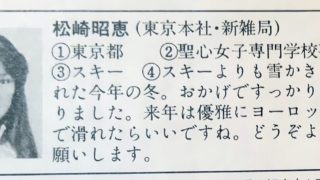 松崎昭恵(東京本社・新雑局)
①東京都　②聖心女子専門学校
③スキー　④スキーよりも雪かき
れた今年の冬。おかげですっかり
りました。来年は優雅にヨーロッ
で滑れたらいいですね。どうぞよ
願いします。